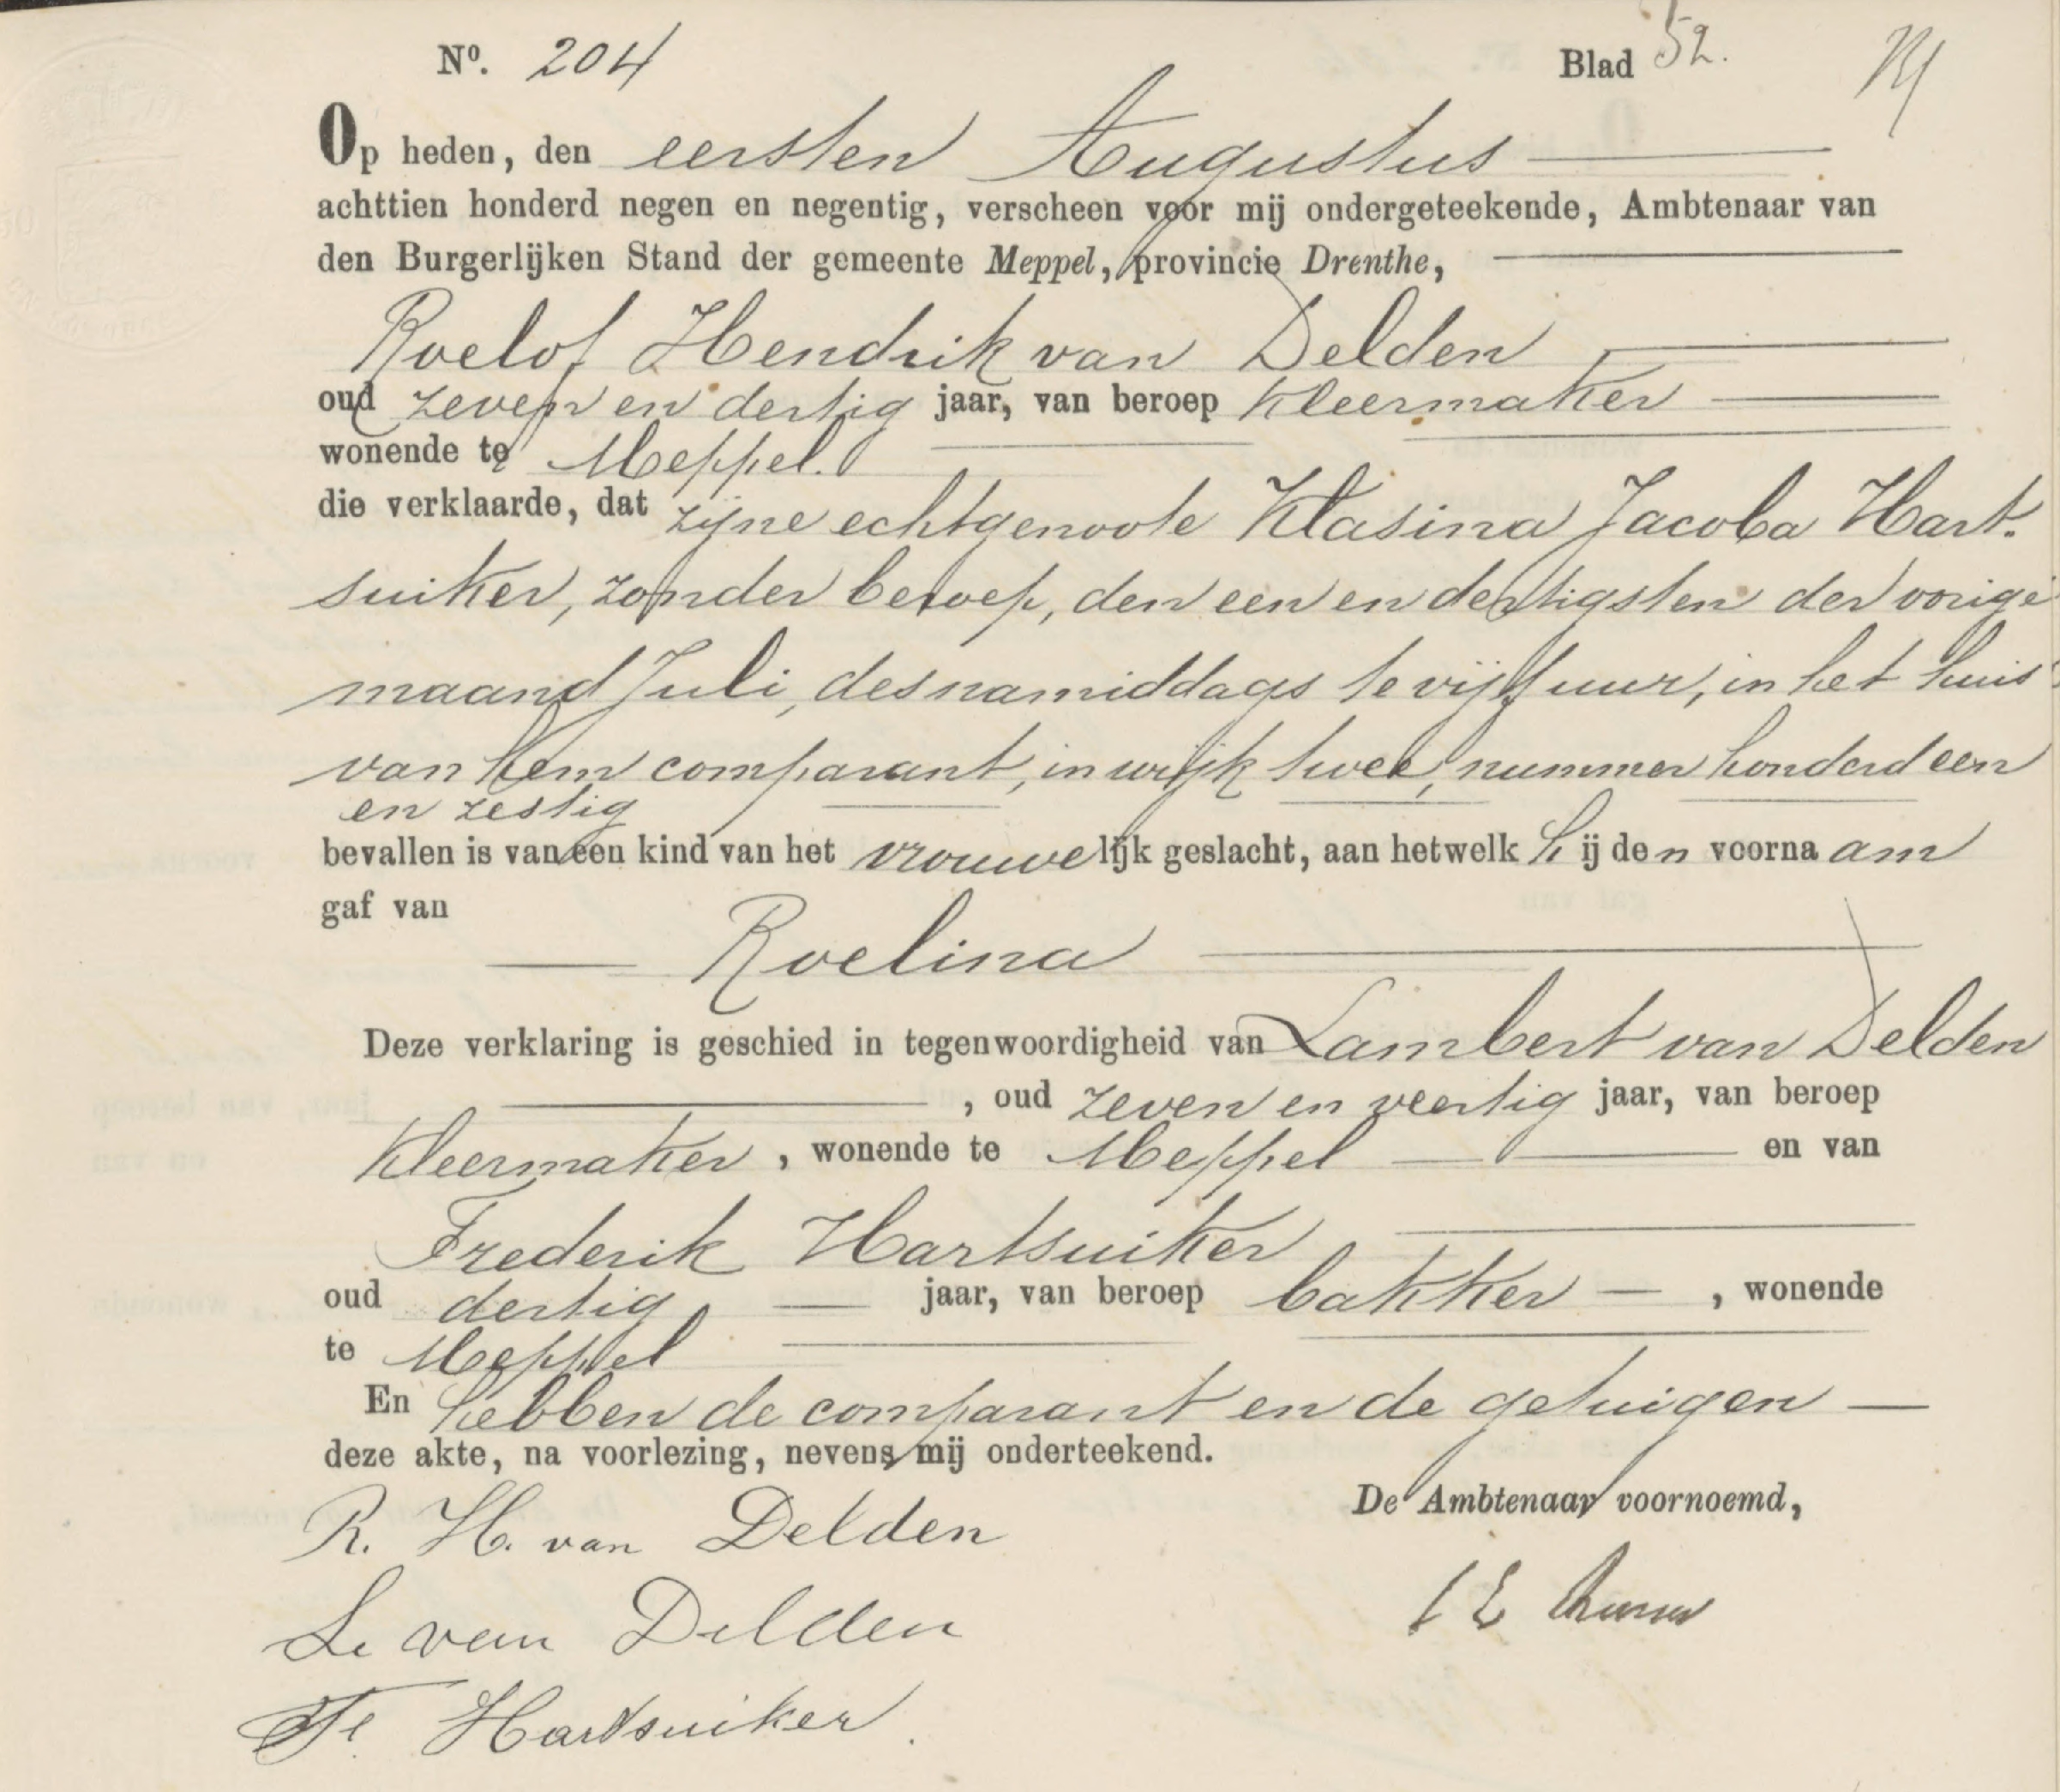 No. 204 Blad 52.
Op heden, den eersten Augustus
achttien honderd negen en negentig, verscheen voor mij ondergeteekende, Ambtenaar van
den Burgerlijken Stand der gemeente Meppel, provincie Drenthe,
Roelof Hendrik van Delden
oud zeven en dertig jaar, van beroep kleermaker
wonende te Meppel.
die verklaarde, dat zijne echtgenoote Klasina Jacoba Hart-
suiker, zonder beroep, den een en dertigsten der vorige
maand Juli, des namiddags te vijf uur, in het huis
van hem comparant, in wijk twee, nummer honderd een
en zestig
bevallen is van een kind van het vrouwelijk geslacht, aan hetwelk hij den voornaam
gaf van
Roelina
Deze verklaring is geschied in tegenwoordigheid van Lambert van Delden
, oud zeven en veertig jaar, van beroep
kleermaker, wonende te Meppel en van
Frederik Hartsuiker
oud dertig jaar, van beroep bakker, wonende
te Meppel
En hebben de comparant en de getuigen
deze akte, na voorlezing, nevens mij onderteekend.
De Ambtenaar voornoemd,
R. H. van Delden
L. van Delden
F. Hartsuiker.